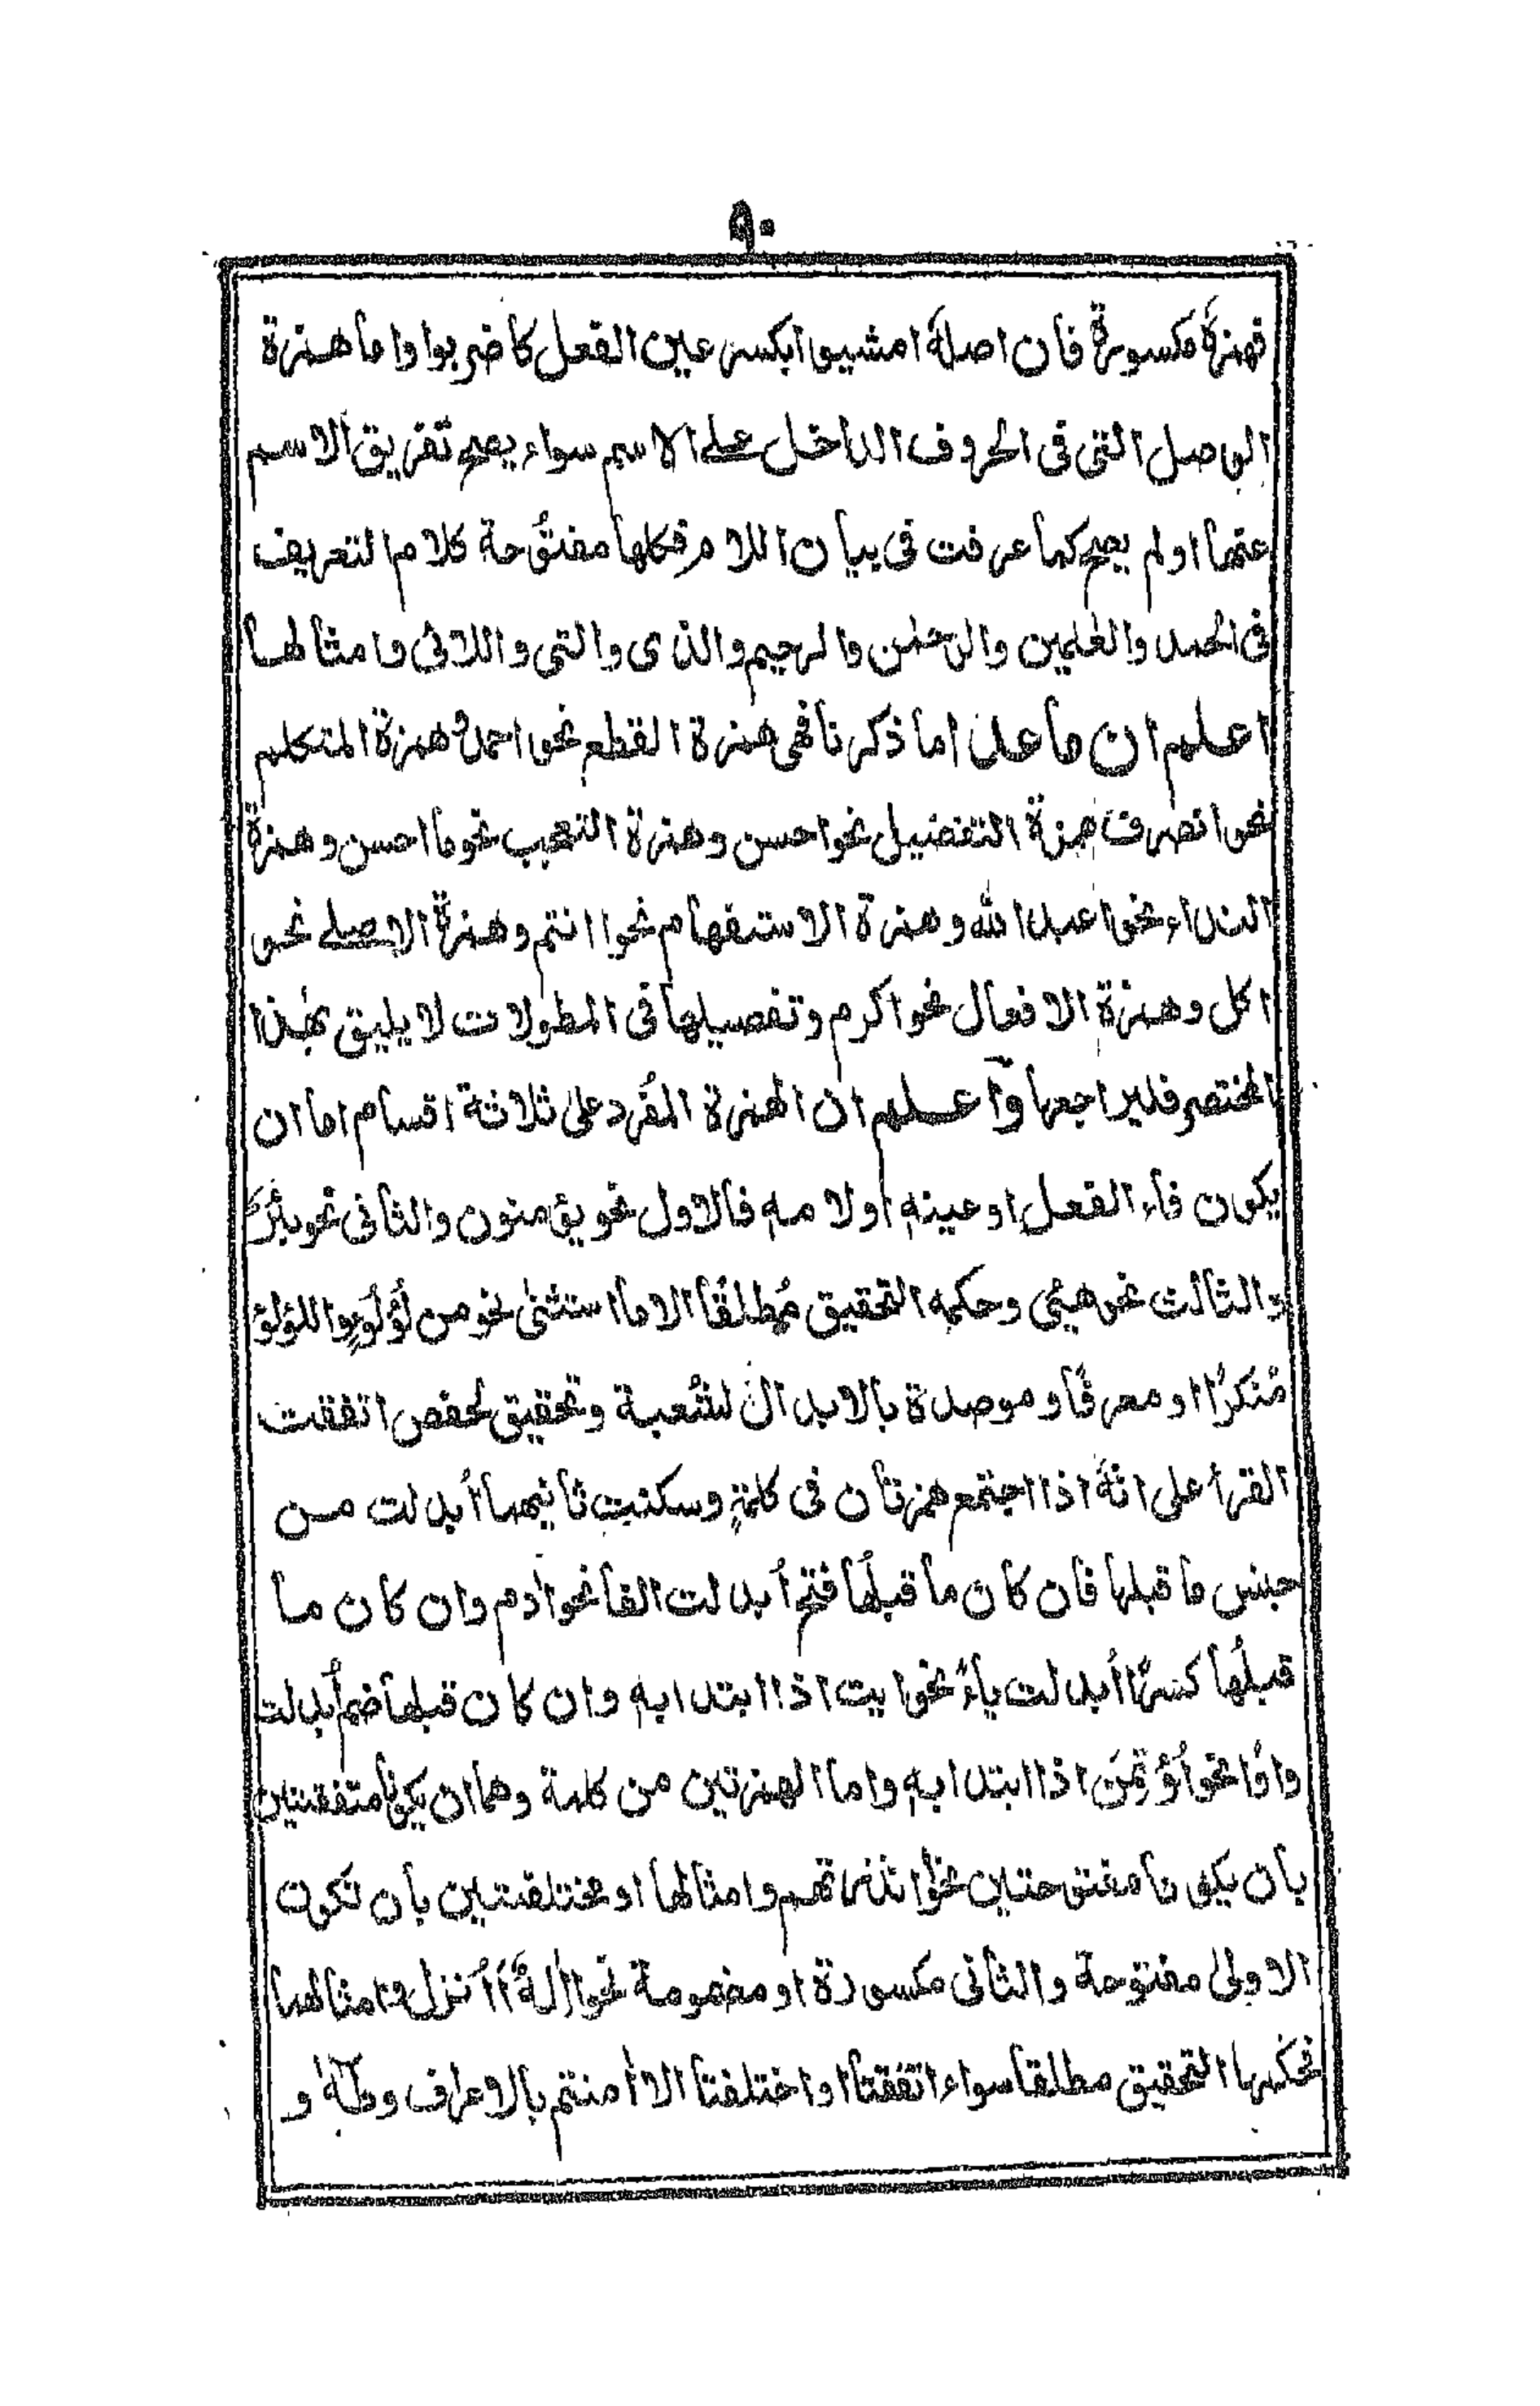 ٩٠
فهمزة مكسورة فان اصلهٗ امشيوا بكسر عين الفعل كاضربوا واما همزة
الوصل التى فى الحروف الداخل على الاسم سواء يصح تفريق الاسم
عنها اولم يصح كما عرفت فى بيان اللام فكلها مفتوحة كلام التعريف
فى الحمد والعٰلمين والرحمٰن والرحيم والذى والتى واللائى وامثالها
اعلم ان ما عدا ما ذكرنا فهى همزة القطع نحو احمد و همزة المتكلم
نحو انصرف همزة التفضيل نحو احسن وهمزة التعجب نحو ما احسن وهمزة
النداء نحو اعبد الله وهمزة الاستفهام نحو اانتم وهمزة الاصلى نحو
اكل وهمزة الافعال نحو اكرم وتفصيلها فى المطولات لا يليق بهٰذا
المختصر فليراجعها واعلم ان الهمزة المفرد على ثلاثة اقسام اما ان
يكون فاء الفعل او عينهٖ او لامهٖ فالاول نحو يؤمنون والثانى نحو بئر
والثالث نحو هيئ وحكمه التحقيق مُطلقًا الا ما استثنىٰ نحو من لُؤلُؤٍ واللؤلؤ
مُنكرًا او معرفًا و موصدة بالابدال لشُعبة وتحقيق لحفص اتفقت
القرأ على انهٗ اذا اجتمع همزتان فى كلمةٍ وسكنت ثانيهما اُبدلت من
جنس ما قبلها فان كان ما قبلُها فتح اُبدلت الفا نحو اٰدم وان كان ما
قبلُها كسرًا اُبدلت ياءً نحو ايت اذا ابتدا بهٖ وان كان قبلها ضم اُبدلت
واوًا نحو اُؤتُمِنَ اذا ابتدا بهٖ واما الهمزتين من كلمة وهما ان يكونا متفقتين
بان يكونا مفتوحتين نحو ءانذرتهم وامثالها او مختلفتين بان تكون
الاولىٰ مفتوحة والثانى مكسورة او مضمومة نحو أإلهٌ أَأُنزل وامثالهما
فحكمها التحقيق مطلقا سواء اتفقتا او اختلفتا الا اٰمنتم بالاعراف وطٰهٰ و